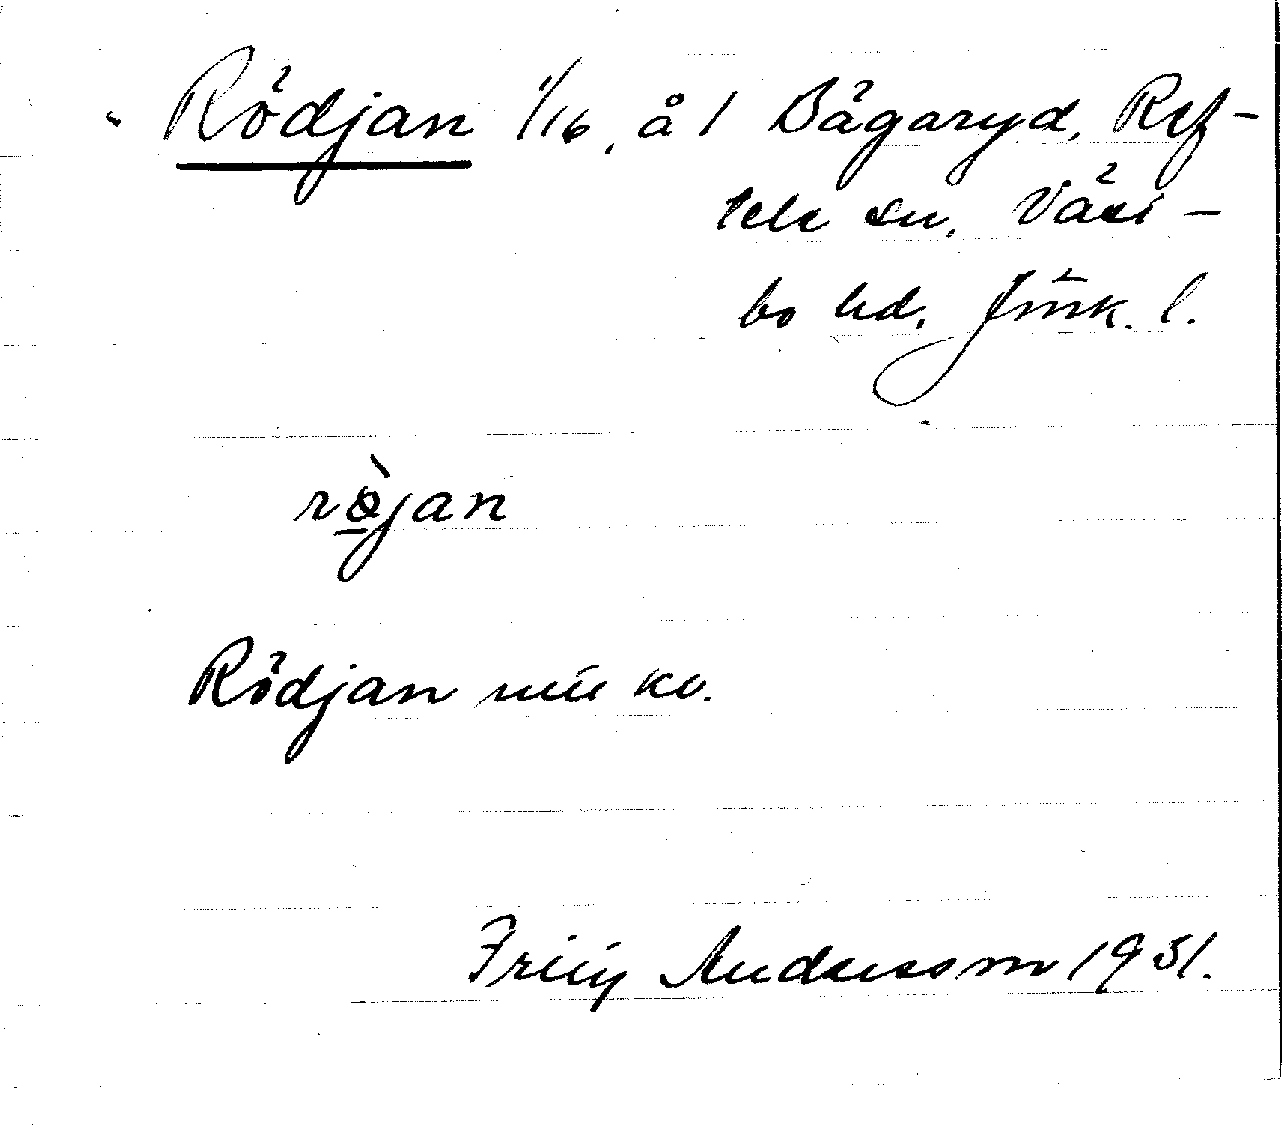 Rödjan 1/16, å l Bägaryd, Ref-
tele sn, Väst-
bo hd, Jönk. l.
rö̀jan
Rödjan
Andersson 1931.